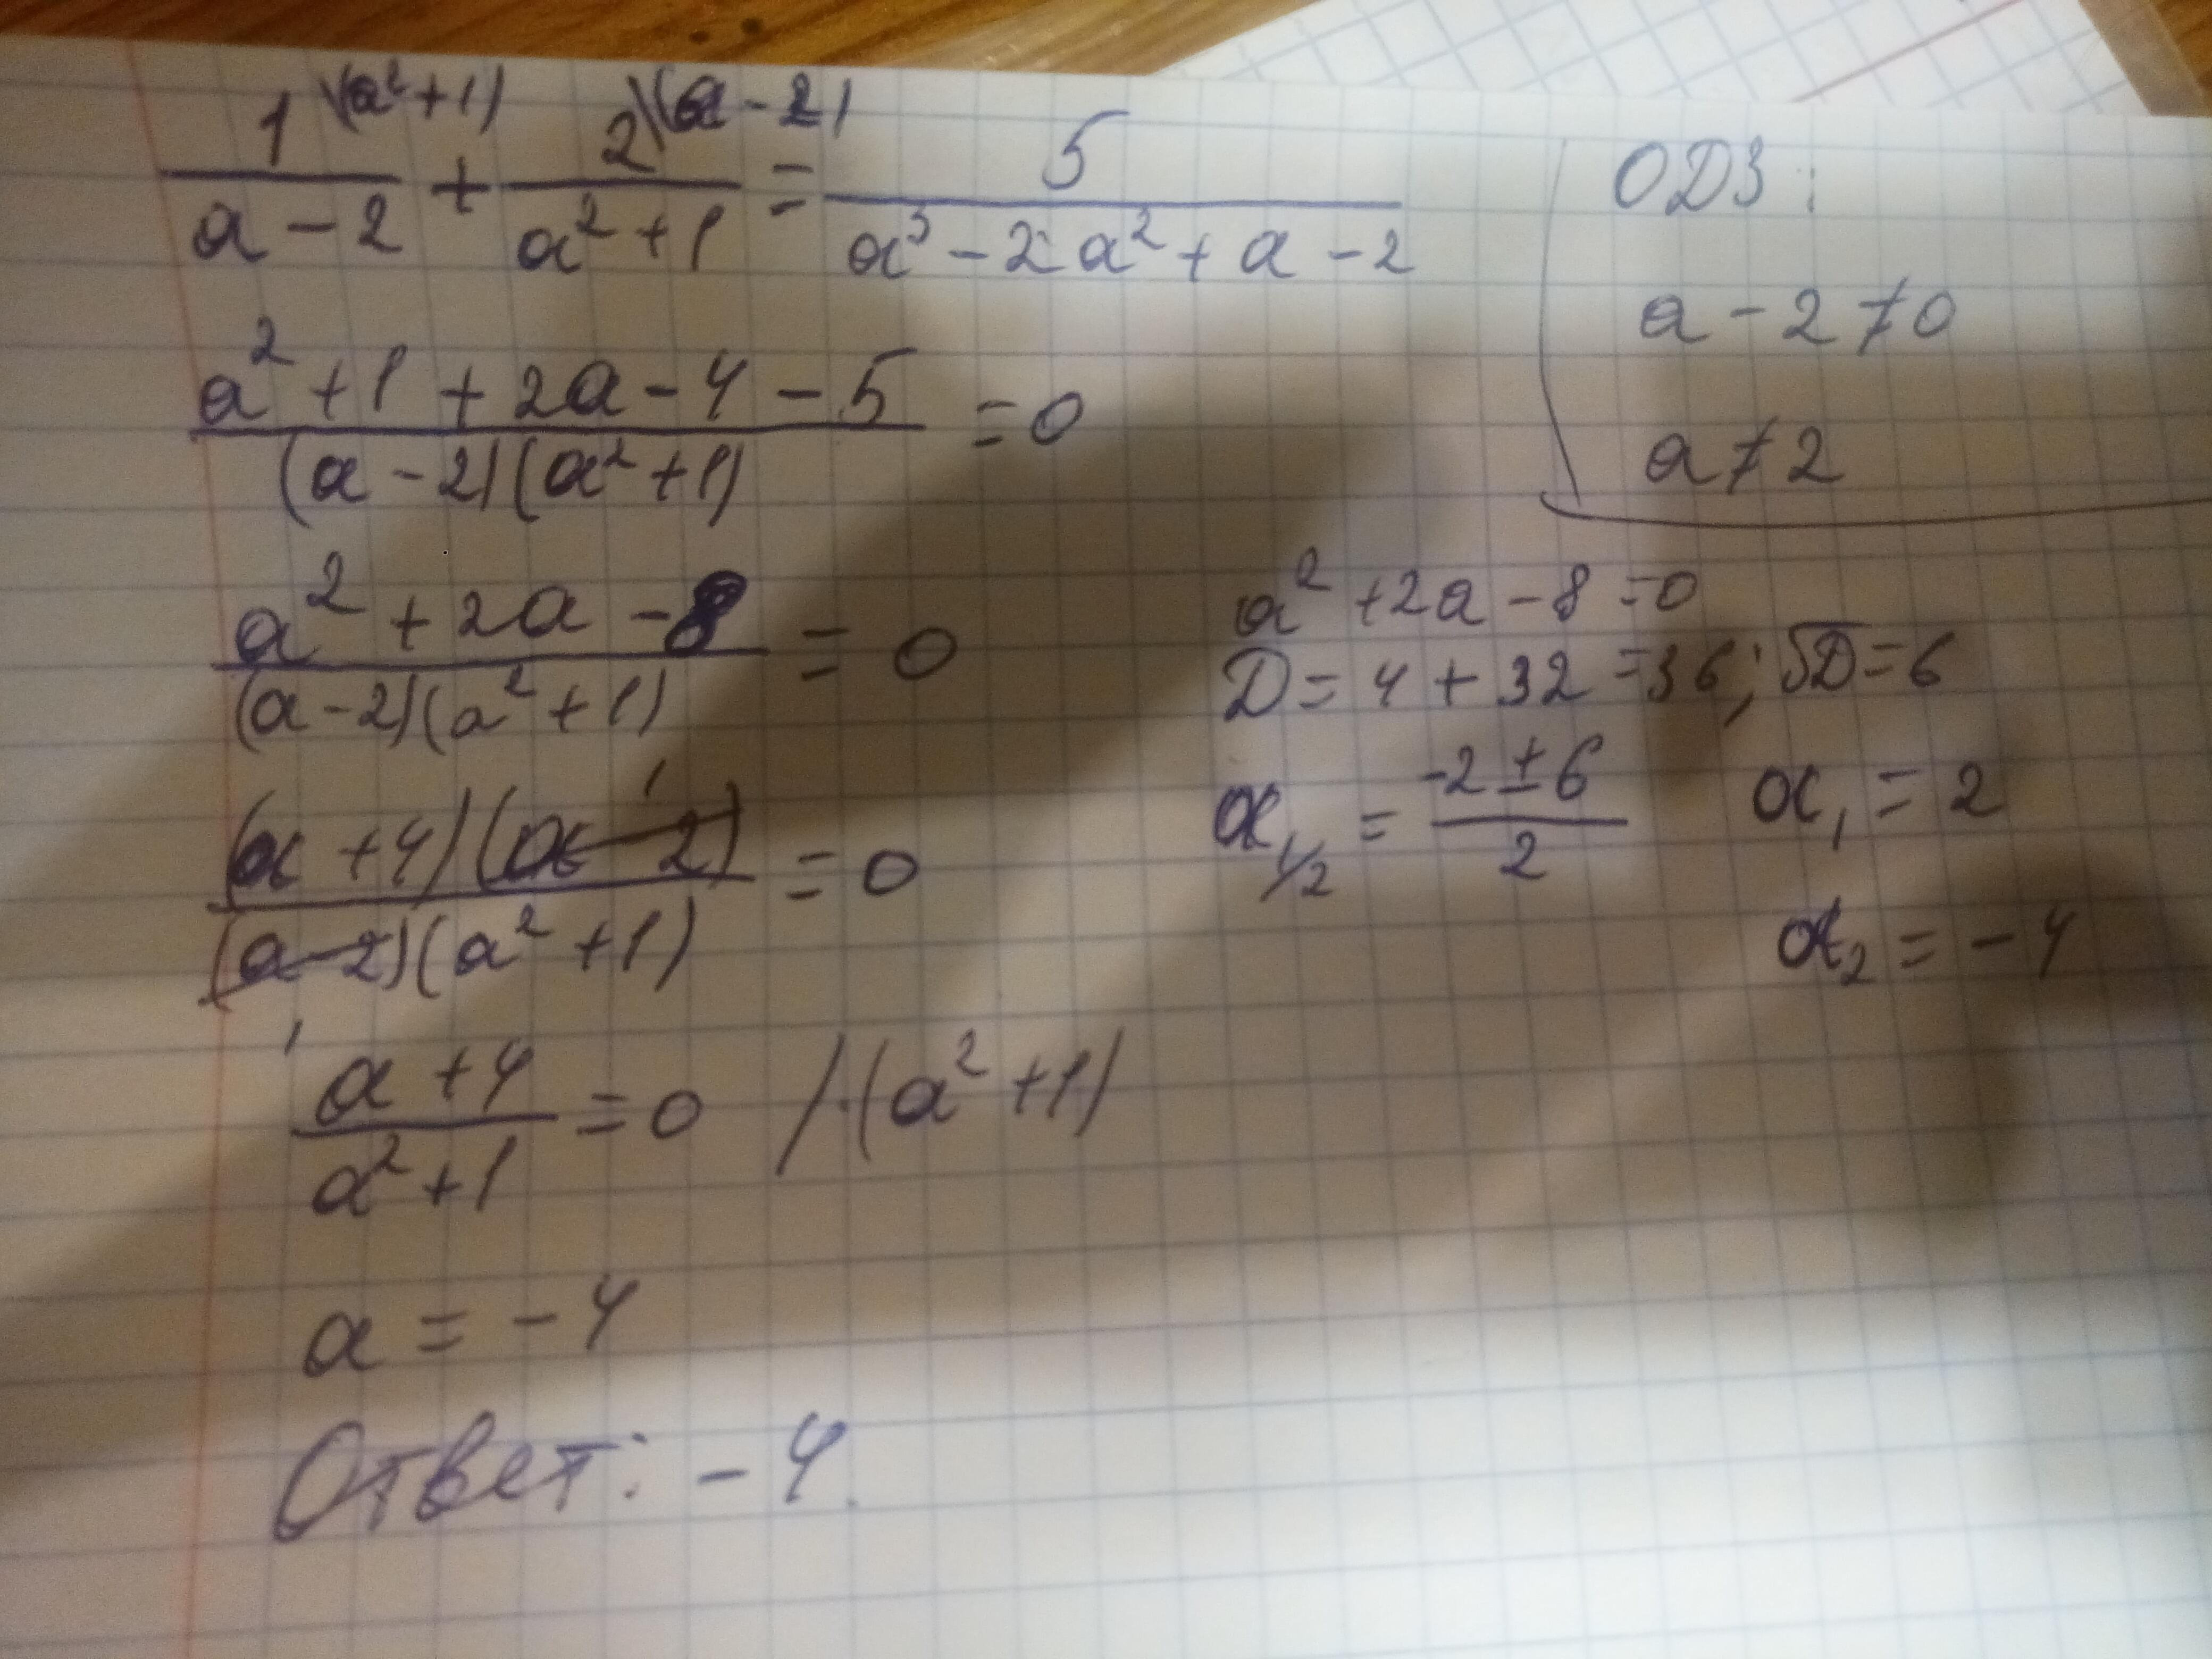 1\(a²+1) / (a-2) + 2\(a-2) / (a²+1) = 5 / (a³-2a²+a-2)
ОДЗ:
a-2≠0
a≠2
(a²+1+2a-4-5) / ((a-2)(a²+1)) = 0
(a²+2a-8) / ((a-2)(a²+1)) = 0
a²+2a-8=0
D=4+32=36; √D=6
a₁/₂ = (-2±6) / 2 a₁=2
a₂=-4
((a+4)(a-2)) / ((a-2)(a²+1)) = 0
(a+4) / (a²+1) = 0 /·(a²+1)
a=-4
Ответ: -4.